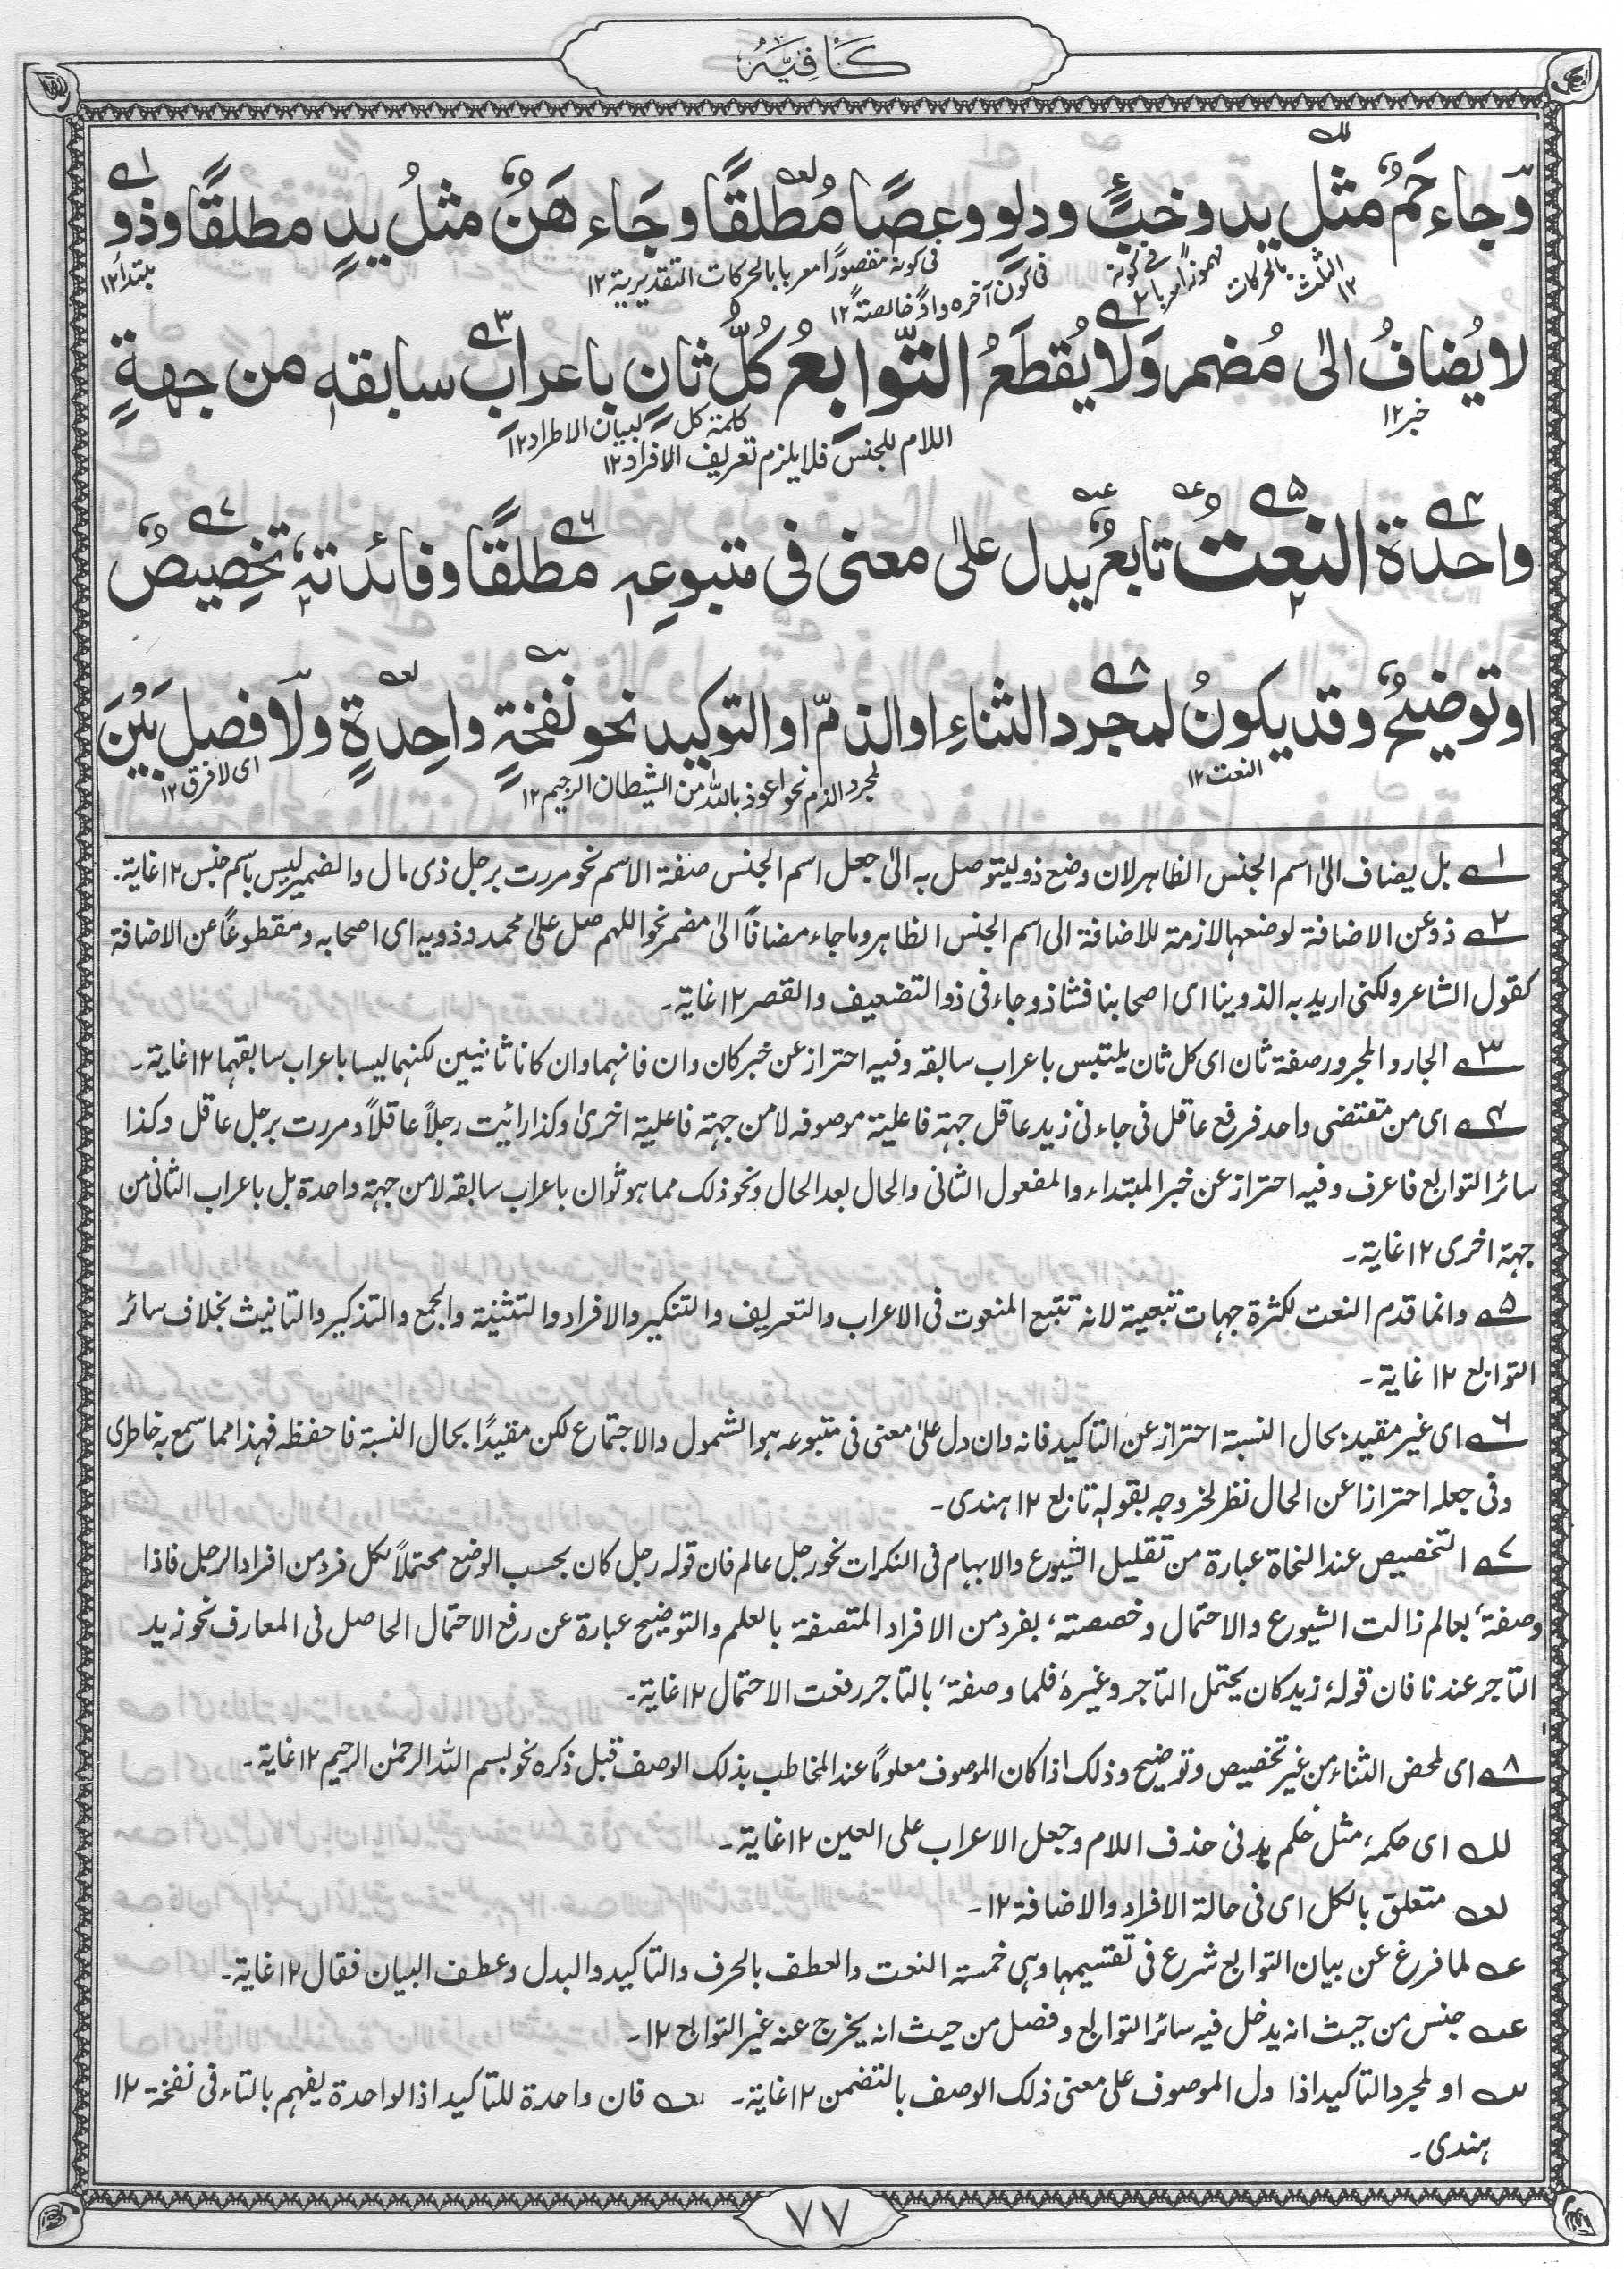 كَافِيَةُ
وَجاء حَمٌ مثل يد وخبءٍ ودلوٍ وعصًا مُطلقًا وجَاء هَنٌ مثلُ يدٍ مطلقًا وذو
المثلث بالحركات ١٢
فى كونه مهموزا معربا
فى كون آخره واوًا خالصةً ١٢
فى كونه مقصورًا معربا بالحركات التقديرية ١٢
مبتدأ ١٢
لا يُضافُ الىٰ مُضمر وَلا يُقطَعُ التّوابعُ كُلُّ ثانٍ باعرابِ سابقهٖ من جهةٍ
خبر ١٢
اللام للجنس فلا يلزم تعريف الافراد ١٢
كلمة كل لبيان الاطراد ١٢
واحدة النعتُ تابعٌ يدل علىٰ معنى فى متبوعهٖ مطلقًا وفائدتهٗ تخصيصٌ
او توضيحٌ وقد يكونُ لمجرد الثناءِ او الذمّ او التوكيد نحو نفخةٍ واحِدةٍ ولا فصل بَيْنَ
النعت ١٢
لمجرد الذم نحو اعوذ بالله من الشيطان الرجيم ١٢
اى لا فرق ١٢
١ بل يضاف الىٰ اسم الجنس الظاهر لان وضع ذو ليتوصل به الىٰ جعل اسم الجنس صفة الاسم نحو مررت برجل ذى مال والضمير ليس باسم جنس ١٢ غاية۔
٢ ذو عن الاضافة لوضعها لازمة للاضافة الى اسم الجنس الظاهر وما جاء مضافاً الىٰ مضمر نحو اللهم صل علىٰ محمد وذويه اى اصحابه ومقطوعاً عن الاضافة
كقول الشاعر ولكنى اريد به الذوينا اى اصحابنا فشاذ وجاء فى ذو التضعيف والقصر ١٢ غاية۔
٣ الجار والمجرور صفة ثان اى كل ثان يلتبس باعراب سابقه وفيه احتراز عن خبر كان وان فانهما وان كانا ثانيين لكنهما ليسا باعراب سابقهما ١٢ غاية۔
٤ اى من مقتضى واحد فرفع عاقل فى جاءنى زيد عاقل جهة فاعلية موصوفه لا من جهة فاعلية اخرىٰ وكذا رائيت رجلاً عاقلاً ومررت برجل عاقل وكذا
سائر التوابع فاعرف وفيه احتراز عن خبر المبتداء والمفعول الثانى والحال بعد الحال ونحو ذلك مما هو ثوان باعراب سابقه لا من جهة واحدة بل باعراب الثانى من
جهة اخرى ١٢ غاية۔
٥ وانما قدم النعت لكثرة جهات تبعية لانه تتبع المنعوت فى الاعراب والتعريف والتنكير والافراد والتثنية والجمع والتذكير والتانيث بخلاف سائر
التوابع ١٢ غاية۔
٦ اى غير مقيد بحال النسبة احتراز عن التاكيد فانه وان دل علىٰ معنى فى متبوعه هو الشمول والاجتماع لكن مقيدًا بحال النسبة فاحفظه فهذا مما سمع به خاطرى
وفى جعله احترازا عن الحال نظر لخروجه بقوله تابع ١٢ هندى۔
٧ التخصيص عند النحاة عبارة من تقليل الشيوع والابهام فى النكرات نحو رجل عالم فان قوله رجل كان بحسب الوضع محتملاً لكل فرد من افراد الرجل فاذا
وصفتهٗ بعالم زالت الشيوع والاحتمال وخصصتهٗ بفرد من الافراد المتصفة بالعلم والتوضيح عبارة عن رفع الاحتمال الحاصل فى المعارف نحو زيد
التاجر عندنا فان قولهٗ زيد كان يحتمل التاجر وغيرهٗ فلما وصفتهٗ بالتاجر رفعت الاحتمال ١٢ غاية۔
٨ اى لمحض الثناء من غير تخصيص وتوضيح وذلك اذا كان الموصوف معلومًا عند المخاطب بذلك الوصف قبل ذكره نحو بسم الله الرحمٰن الرحيم ١٢ غاية۔
لك اى حكمهٗ مثل حكم يد فى حذف اللام وجعل الاعراب على العين ١٢ غاية۔
لعه متعلق بالكل اى فى حالة الافراد والاضافة ١٢۔
عه لما فرغ عن بيان التوابع شرع فى تقسيمها وهى خمسة النعت والعطف بالحرف والتاكيد والبدل وعطف البيان فقال ١٢ غاية۔
عه جنس من حيث انه يدخل فيه سائر التوابع وفصل من حيث انه يخرج عنه غير التوابع ١٢۔
سه او لمجرد التاكيد اذا دل الموصوف على معنى ذلك الوصف بالتضمن ١٢ غاية۔ لعه فان واحدة للتاكيد اذا لواحدة يفهم بالتاء فى نفخة ١٢
هندى۔
٧٧